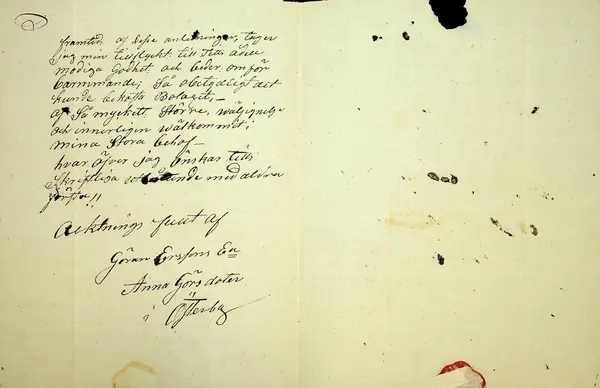 framtid. af dessa anledningar, tager
jag min tillflykt till Titt ädel
modiga Godhet och beder om för
barmmande; Så obetydligt det
kunde bekosta Bolaget,—
af Så mycket Större, wälsignelse
och innerligen wälkommit i
mina Stora behof—
hvar öfver jag önskar titt
Skriftliga utlåtande med aldra
första //
Acktnings fullt af
Göran Erssons Ea
Anna Görs doter
i Österby